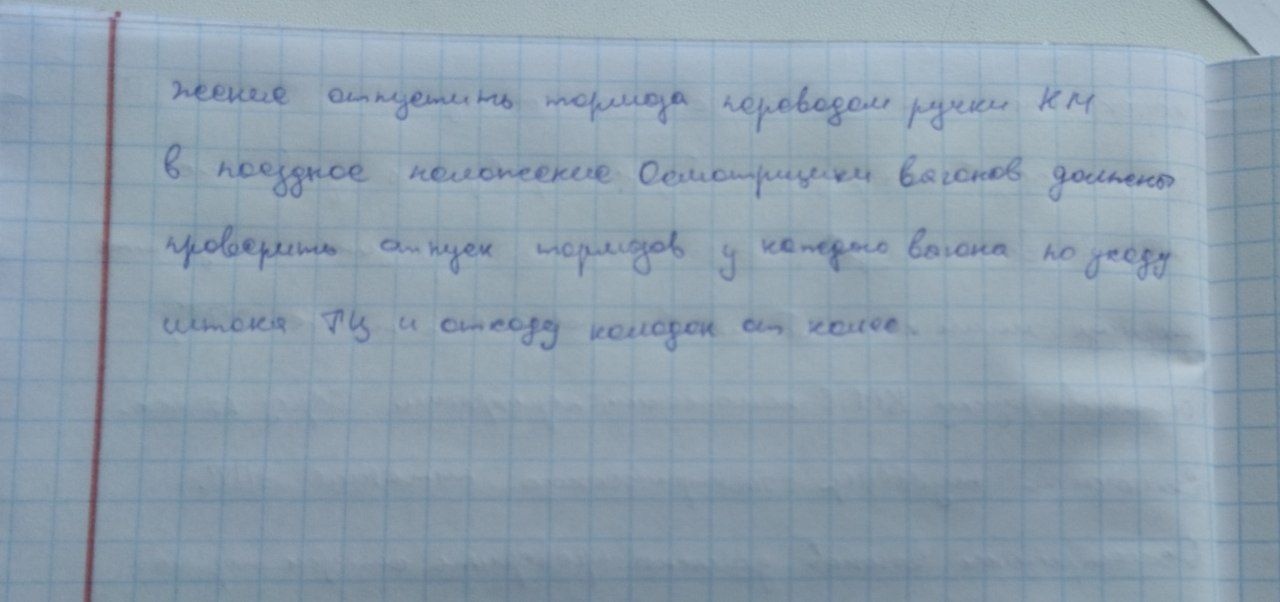 жение отпустить тормоза переводом ручки КМ
в поездное положение Осмотрщики вагонов должны
проверить отпуск тормозов у каждого вагона по уходу
штока ТЦ и отходу колодок от колес